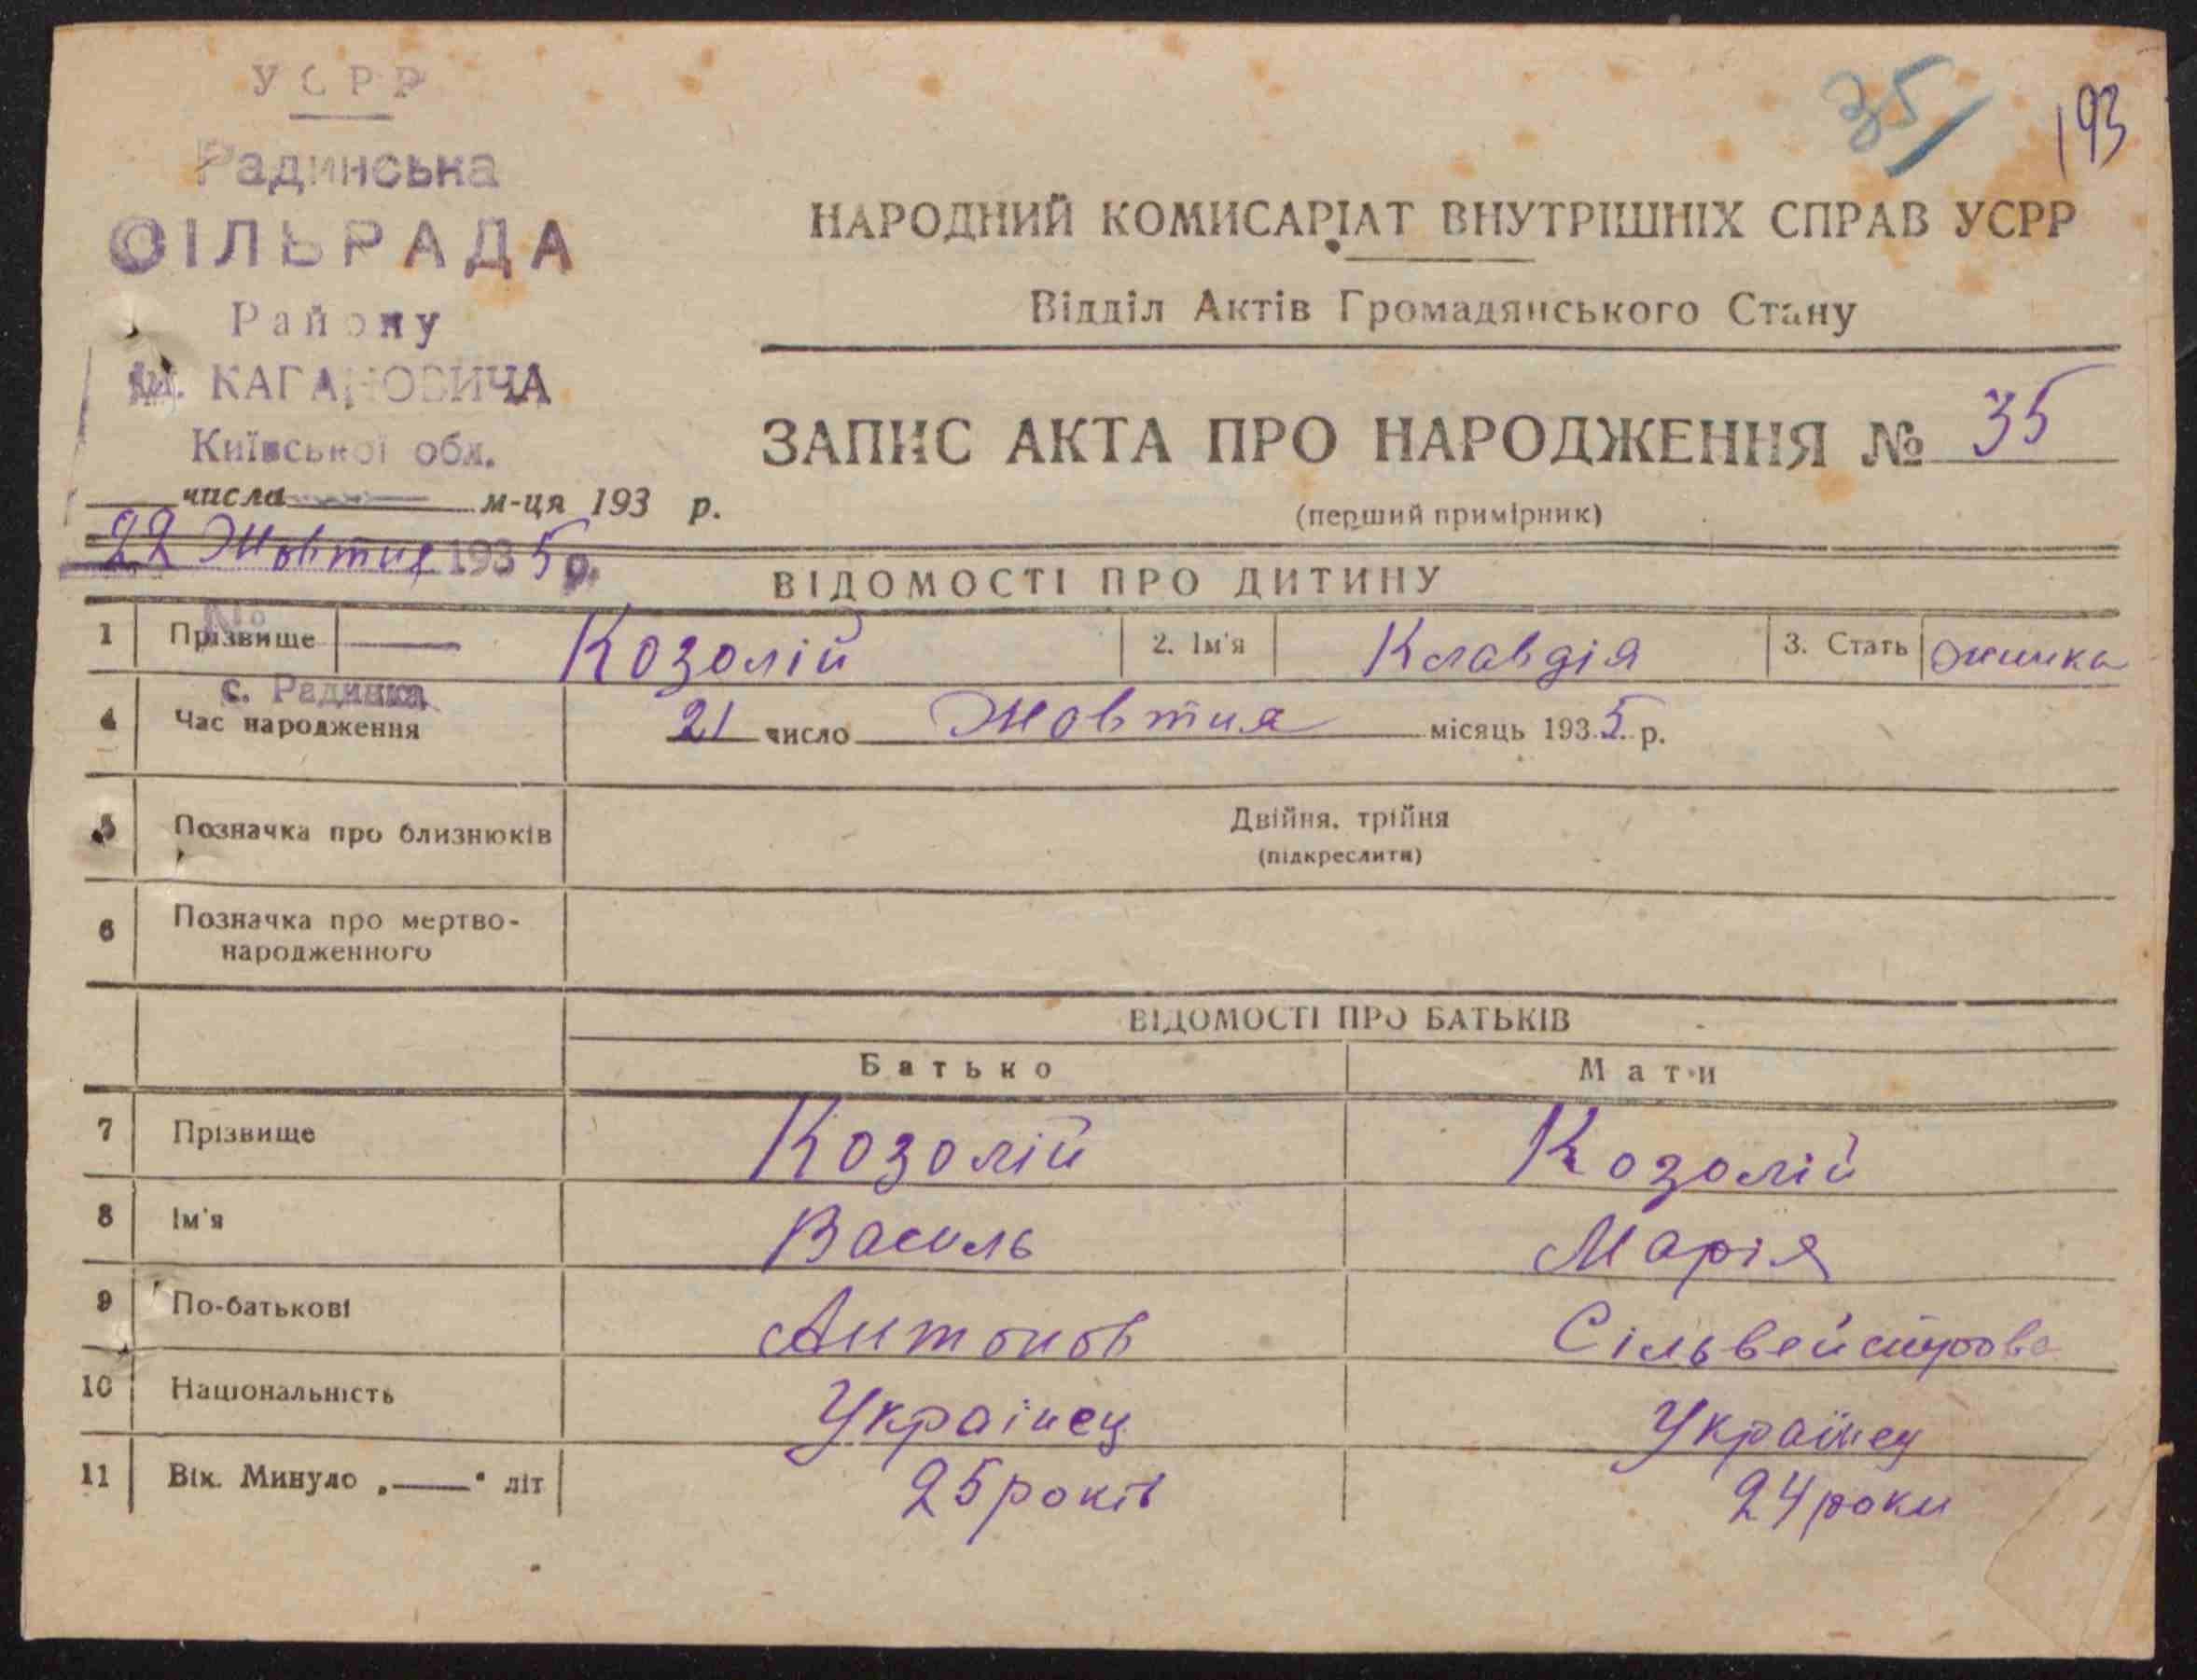 УСРР
Радинська
СІЛЬРАДА
Району
ім. КАГАНОВИЧА
Київської обл.
числа м-ця 193 р.
22 Жовтня 1935 р.
№
с. Радинка
35
193
НАРОДНИЙ КОМИСАРІАТ ВНУТРІШНІХ СПРАВ УСРР
Відділ Актів Громадянського Стану
ЗАПИС АКТА ПРО НАРОДЖЕННЯ № 35
(перший примірник)
ВІДОМОСТІ ПРО ДИТИНУ
1 Прізвище Козолій 2. Ім'я Клавдія 3. Стать
4 Час народження 21 число Жовтня місяць 1935 р.
5 Позначка про близнюків Двійня, трійня
(підкреслити)
6 Позначка про мертво-
народженного
ВІДОМОСТІ ПРО БАТЬКІВ
Батько Мати
7 Прізвище Козолій Козолій
8 Ім'я Василь Марія
9 По-батькові Антонов Сільвейстрова
10 Національність Україінец Українец
11 Вік. Минуло „——“ літ 25 років 24 роки